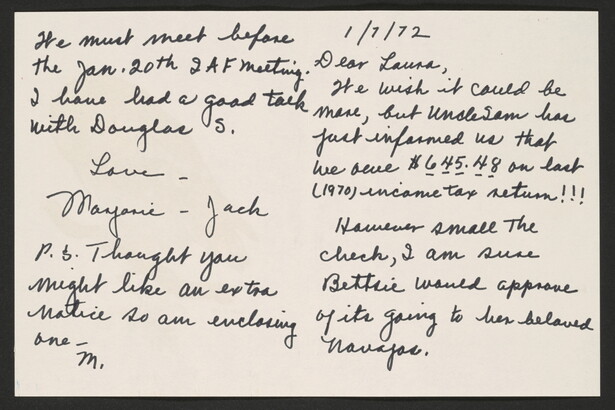 1/7/72
Dear Laura,
We wish it could be
more, but Uncle Sam has
just informed us that
we owe $645.48 on last
(1970) income tax return!!!
However small the
check, I am sure
Bettsie would approve
of its going to her beloved
Navajos.
We must meet before
the Jan. 20th IAF meeting.
I have had a good talk
with Douglas S.
Love -
Marjorie - Jack
P.S. Thought you
might like an extra
notice so am enclosing
one -
M.